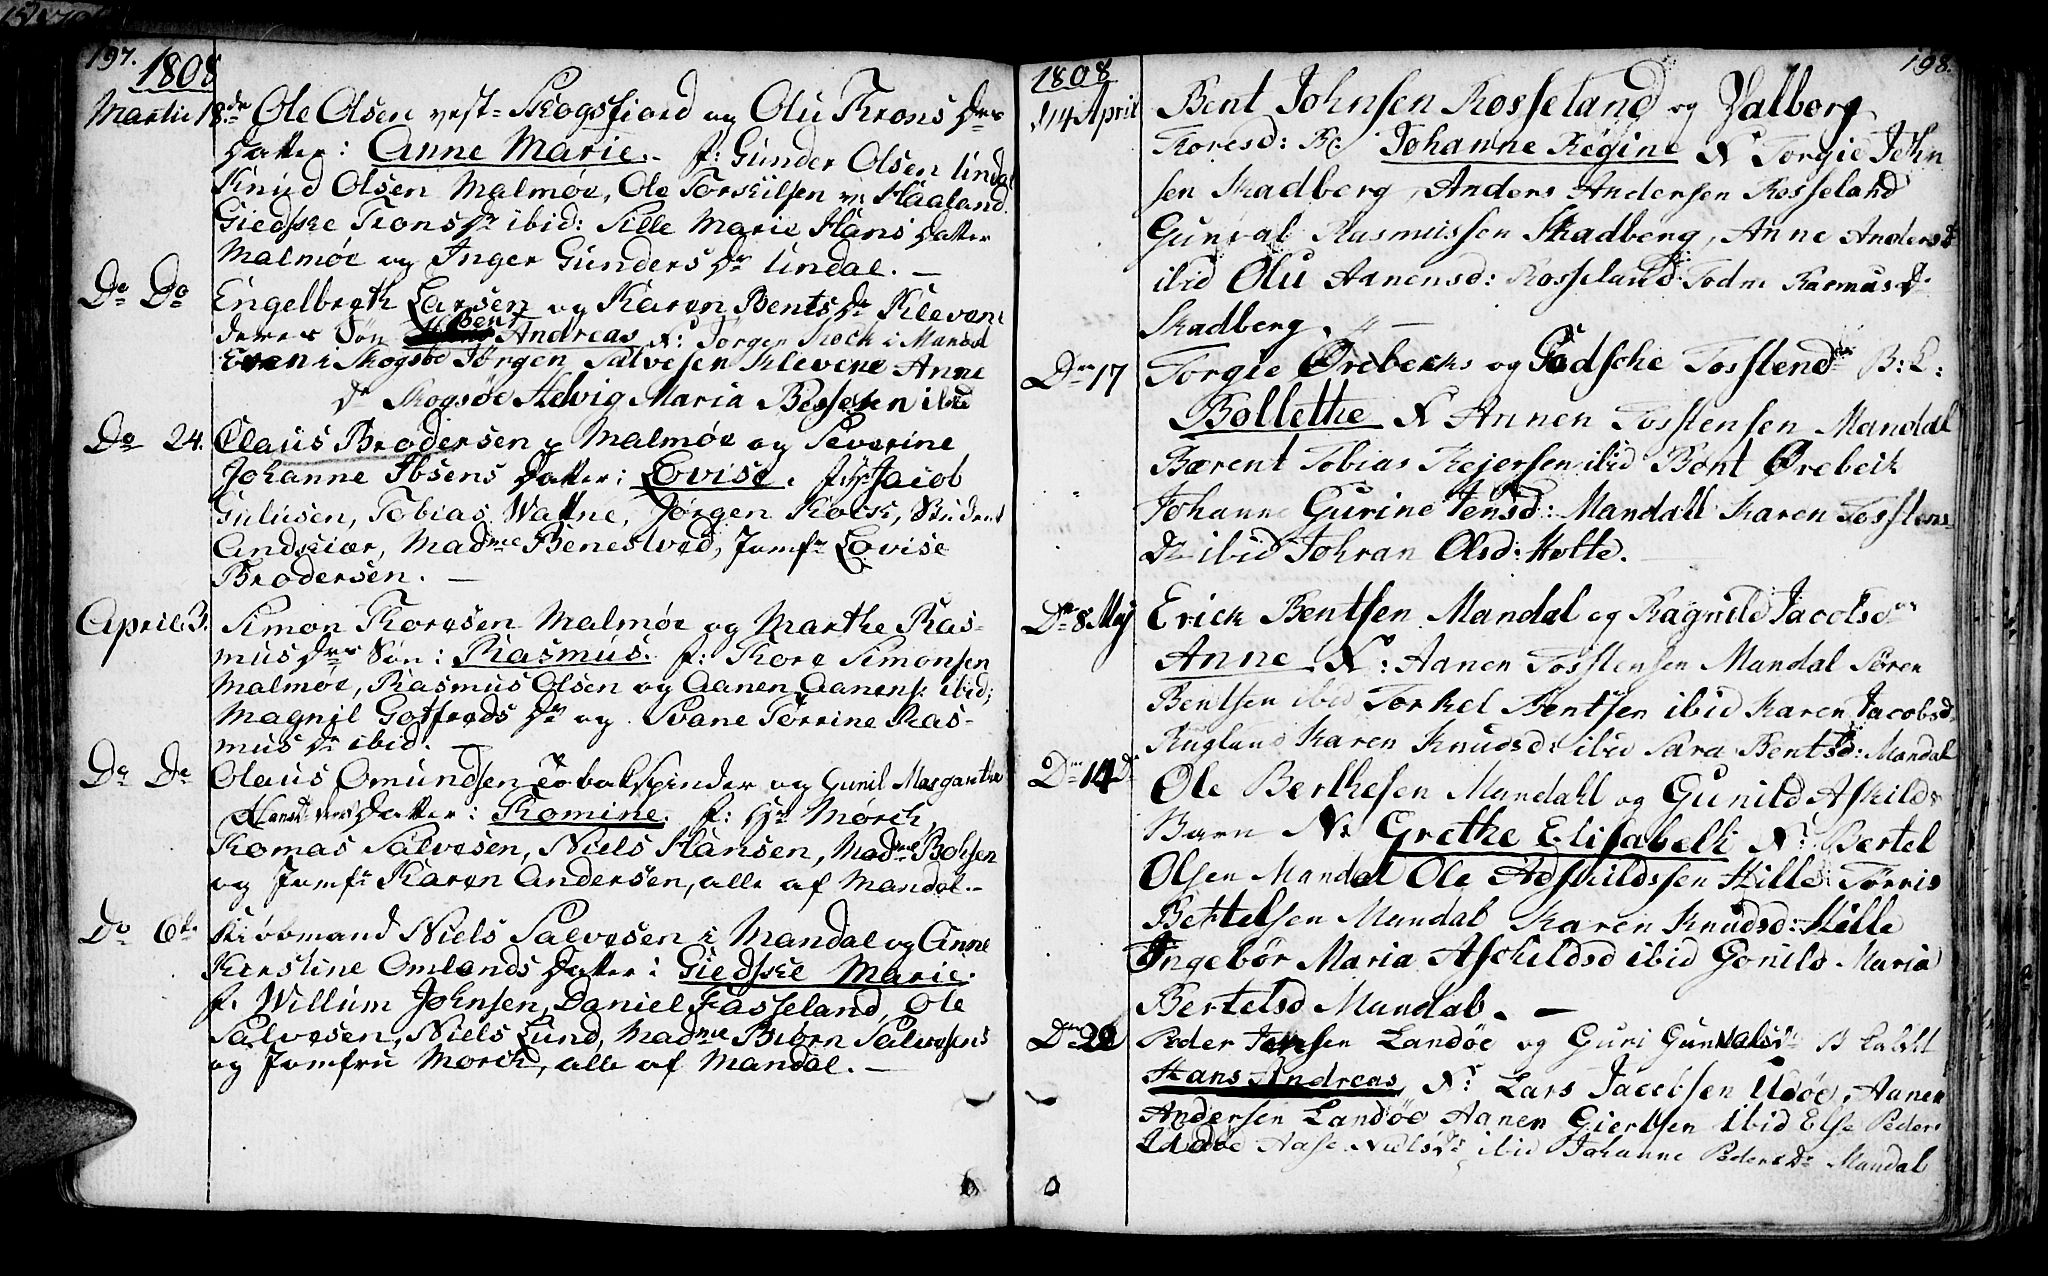 197.
1808
Martii 18de Ole Olsen vest-Skogsfiord og Olu Trons Dr
Datter: Anne Marie. f: Gunder Olsen Undal
Knud Olsen Malmøe, Ole Torkilsen v: Haaland
Giedske Trons Dr ibid: Sille Marie Hans Datter
Malmøe og Inger Gunders Dr Undal. —
Do Do Engelbreth Larsen og Karen Bents Dr Klevene
deres Søn Bent Andreas N: Jørgen Kock i Mandal
Even i Skogsøe Jørgen Salvesen Klevene Anne
Dr Skogsøe Helvig Maria Bessesen ibid
Do 24. Claus Brodersen Malmøe og Severine
Johanne Ibsens Datter: Lovise. f: Hr Jacob
Gulusen, Tobias Wattne, Jørgen Kock, Student
Andskiær, Madme Benestved, Jomfr Lovise
Brodersen. —
April: 3. Simon Toresen Malmøe og Marthe Ras-
mus Drs Søn: Rasmus. f: Tore Simonsen
Malmøe, Rasmus Olsen og Aanen Aanens: ibid;
Magnil Gotfreds Dr og Svane Torrine Ras-
mus Dr ibid. —
Do Do Olaus Omundsen Tobakspinder og Gunil Margarethe
Datter: Romine. f: Hr Mørch,
Tomas Salvesen, Niels Hansen, Madme Bohsen
og Jomfr Karen Andersen, alle af Mandal.-
Do 6te Kiøbmand Niels Salvesen i Mandal og Anne
Kirstine Omlands Datter: Giedske Marie.
f. Willum Johnsen, Daniel Fasseland, Ole
Salvesen, Niels Lund, Madme Biørn Salvesens
og Jomfru Morch, alle af Mandal. —
198.
1808
14 April Bent Johnsen Rosseland og Valborg
Toresd: Bc: Johanne Regine N Torgie John
sen Skadberg, Anders Andersen Rosseland
Gunval Rasmussen Skadberg, Anne Andersd
ibid Olu Aanensd: Rosseland Todne Rasmusd
Skadberg. —
Dn 17 Torgie Ørebecks og Giedsche Tosstend B:
Bollethe N Aanen Tosstensen Mandal
Bærent Tobias Rejersen ibid Bent Ørebeck
Johanne Gurine Jensd: Mandall Karen Tosstens
Dr ibid Johran Olsd: Holte.
Dn 8 Maj Erick Bentsen Mandal og Ragnild Jacobsd
Anne N: Aanen Tosstensen Mandal Søren
Bentsen ibid Torkel Bentsen ibid Karen Jacobsd
Rugland Karen Knudsd: ibid Sara Bentsd: Mandal
Dn 14d Ole Berthesen Mandahl og Gunild Askilds
Barn N: Grethe Elisabeth N: Bertel
Olsen Mandal Ole Adskildssen Hille Torris
Bertelsen Mandal Karen Knudsd: Hille
Ingebor Maria Aschildsd ibid Gonild Maria
Bertelsd Mandal. —
Dn 22 Peder Jensen Landøe og Guri Gunvalsd B kaldt
Hans Andreas N: Lars Jacobsen Udøe, Aanen
Andersen Landøe Aanen Giertsen ibid Else Peders
Udøe Aase Nielsdr ibid Johanne Peders Dr Mandal